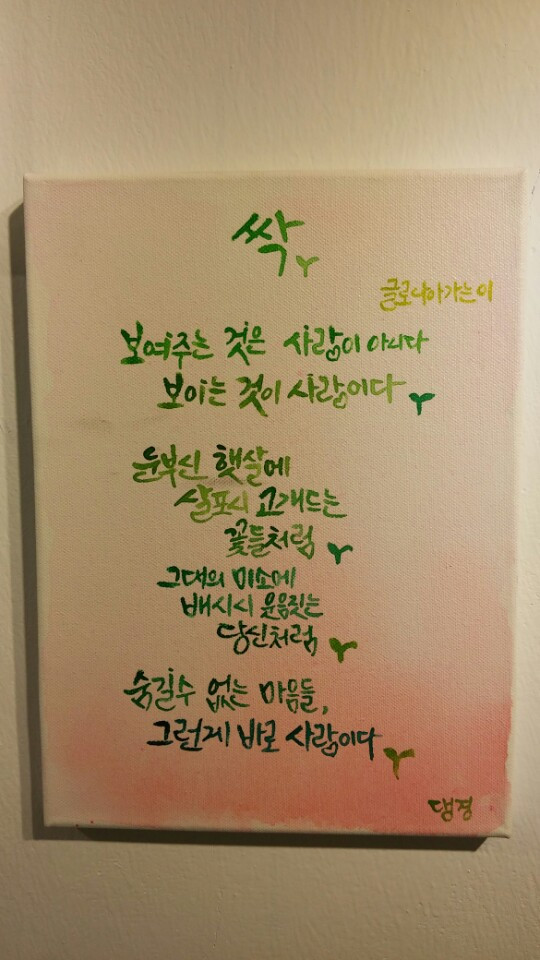 싹
글로나아가는이
보여주는 것은 사랑이 아니다
보이는 것이 사랑이다
눈부신 햇살에
살포시 고개드는
꽃들처럼
그대의 미소에
배시시 웃음짓는
당신처럼
숨길수 없는 마음들,
그런게 바로 사랑이다
댐경